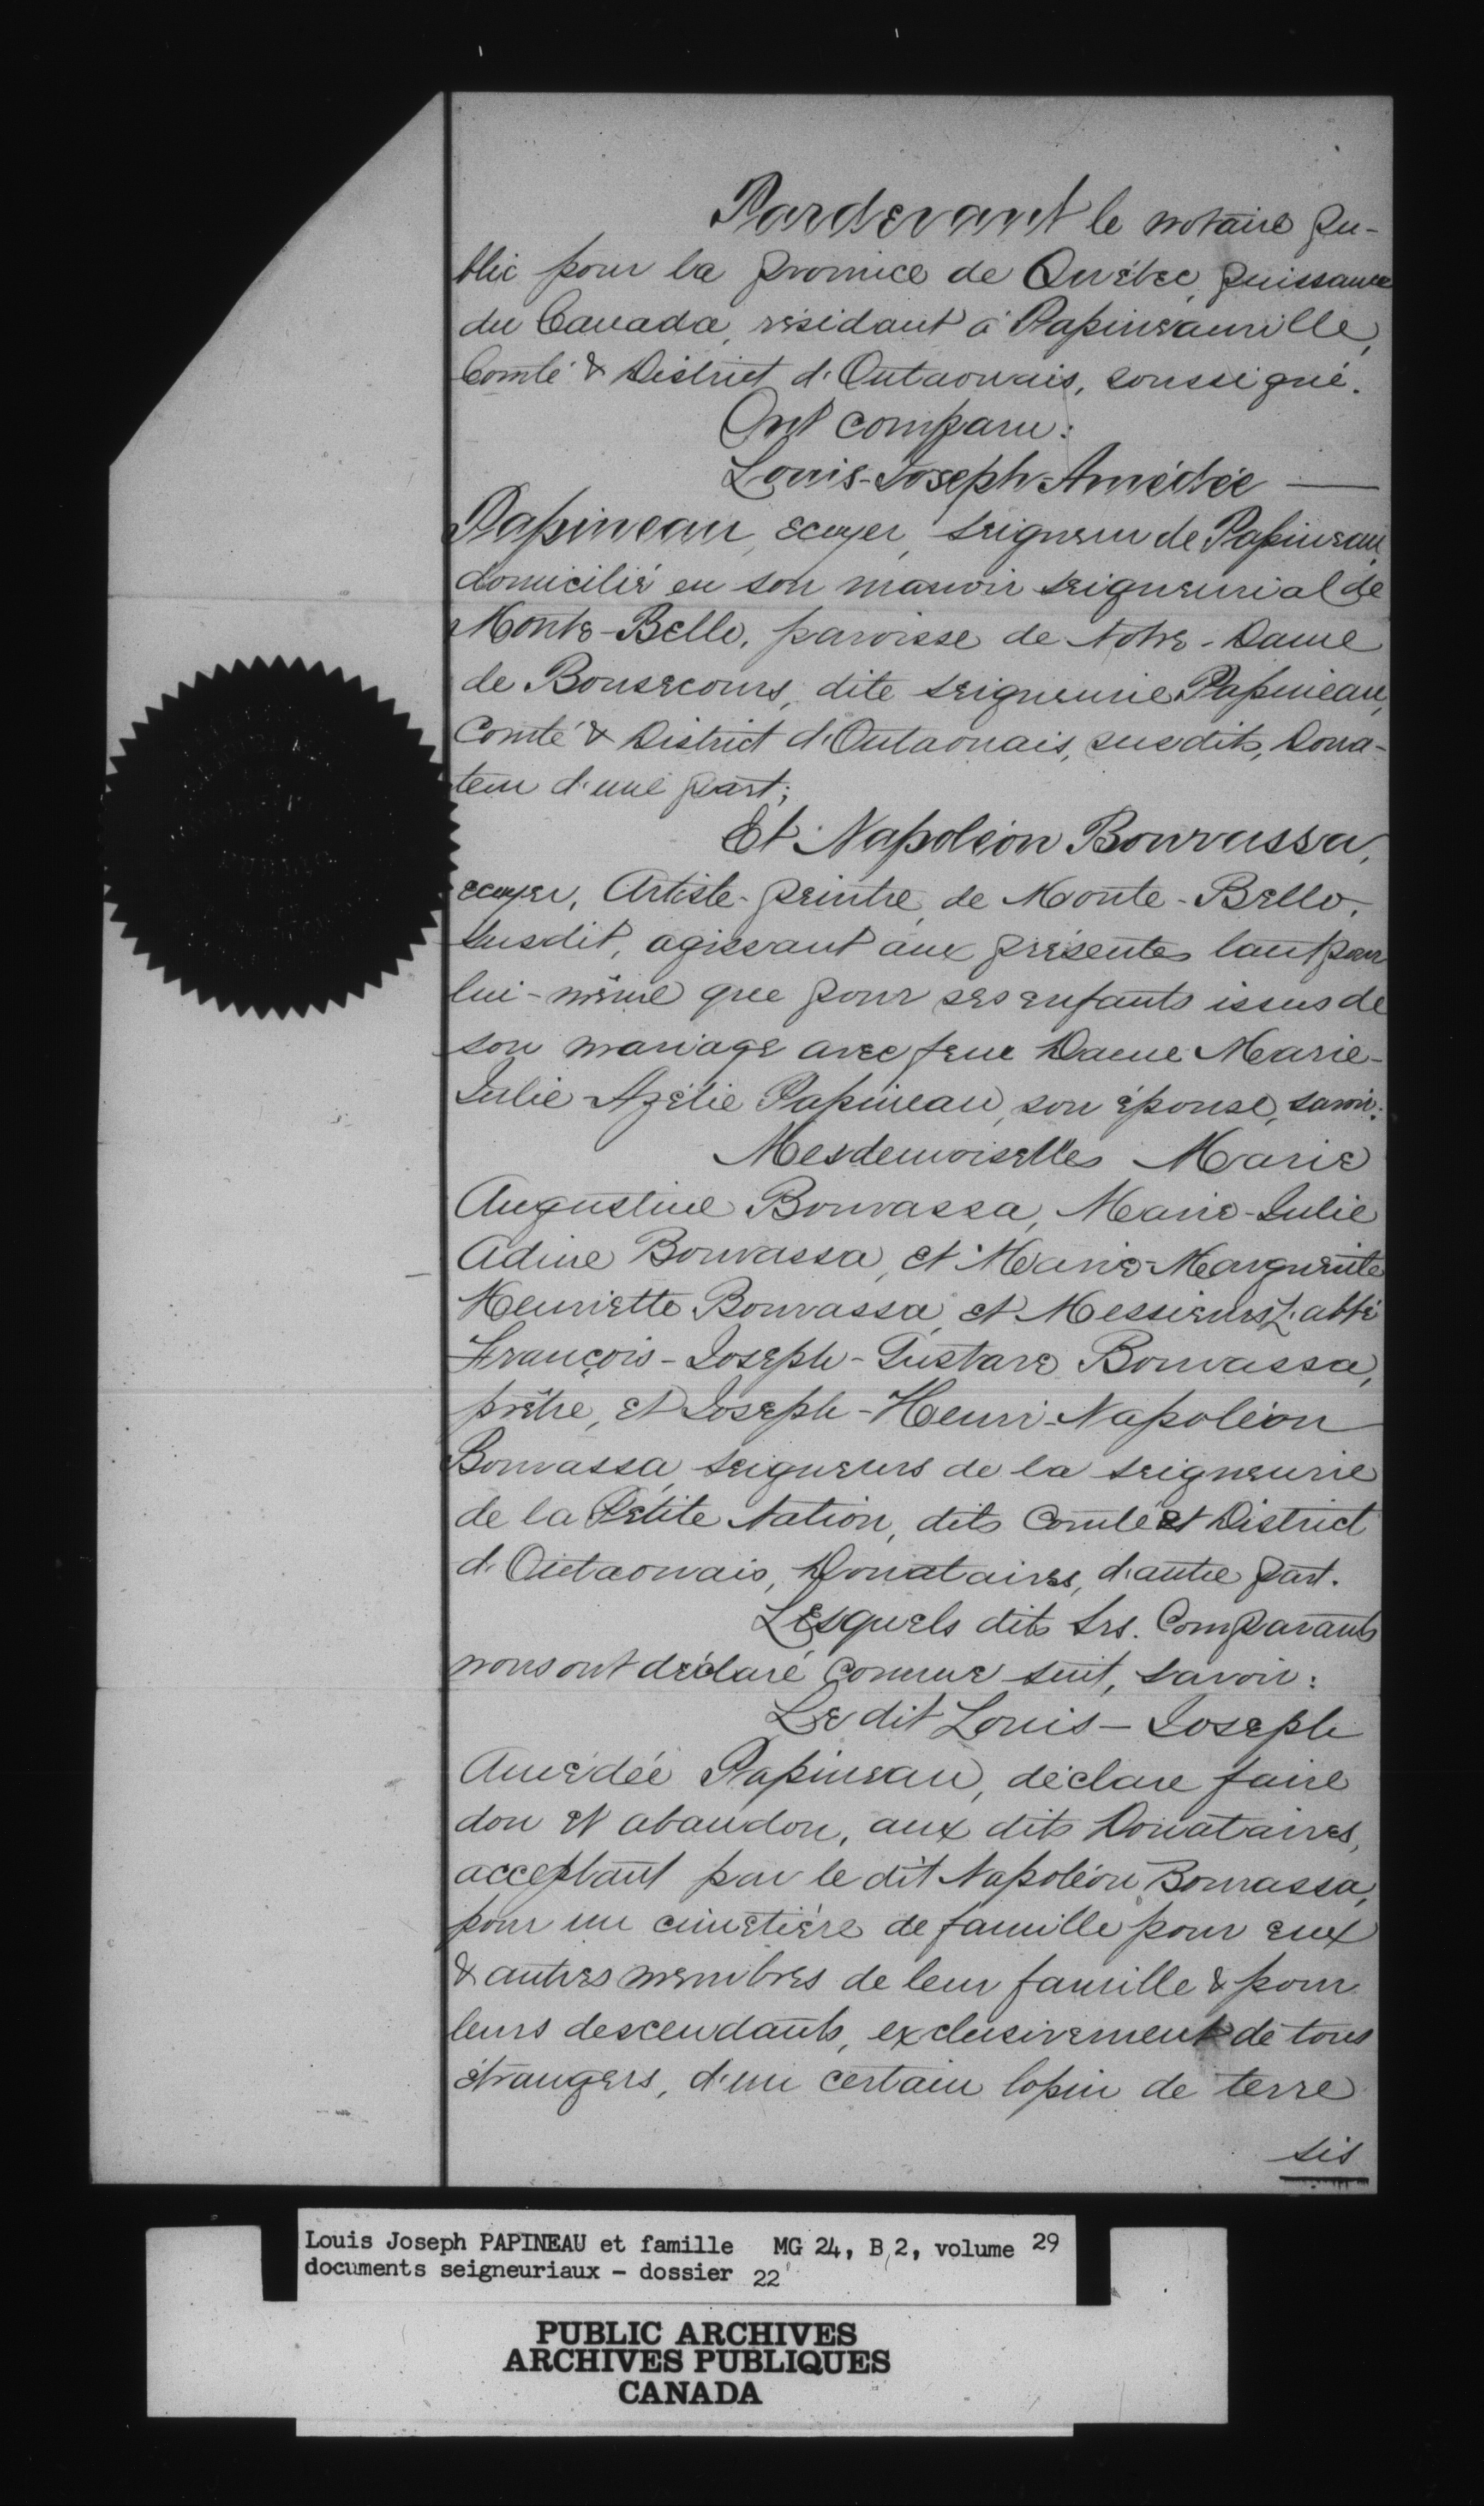 Pardevant le notaire pu-
blic pour la province de Québec, puissance
du Canada, résidant à Papineauville,
Comté & District d'Outaouais, soussigné.
Ont comparu:
Louis-Joseph-Amédée —
Papineau, écuyer, seigneur de Papineau,
domicilié en son manoir seigneurial de
Monte-Bello, paroisse de Notre-Dame
de Bonsecours, dite seigneurie Papineau,
Comté & District d'Outaouais, susdits, Dona-
teur d'une part;
Et Napoléon Bourassa,
écuyer, Artiste-peintre, de Monte-Bello,
susdit, agissant aux présentes tant pour
lui-même que pour ses enfants issus de
son mariage avec feue Dame Marie-
Julie-Azélie Papineau, son épouse, savoir:
Mesdemoiselles Marie
Augustine Bourassa, Marie-Julie
Adine Bourassa, et Marie-Marguerite
Henriette Bourassa, et Messieurs L'abbé
François-Joseph-Gustave Bourassa,
prêtre, et Joseph-Henri-Napoléon
Bourassa, seigneurs de la seigneurie
de la Petite Nation, dits Comté et District
d'Outaouais, Donataires, d'autre part.
Lesquels dits Srs. Comparants
nous ont déclaré comme suit, savoir:
Le dit Louis-Joseph
Amédée Papineau, déclare faire
don et abandon, aux dits Donataires,
acceptant par le dit Napoléon Bourassa,
pour un cimetière de famille pour eux
& autres membres de leur famille & pour
leurs descendants, exclusivement de tous
étrangers, d'un certain lopin de terre
sis
Louis Joseph PAPINEAU et famille MG 24, B 2, volume 29
documents seigneuriaux - dossier 22
PUBLIC ARCHIVES
ARCHIVES PUBLIQUES
CANADA